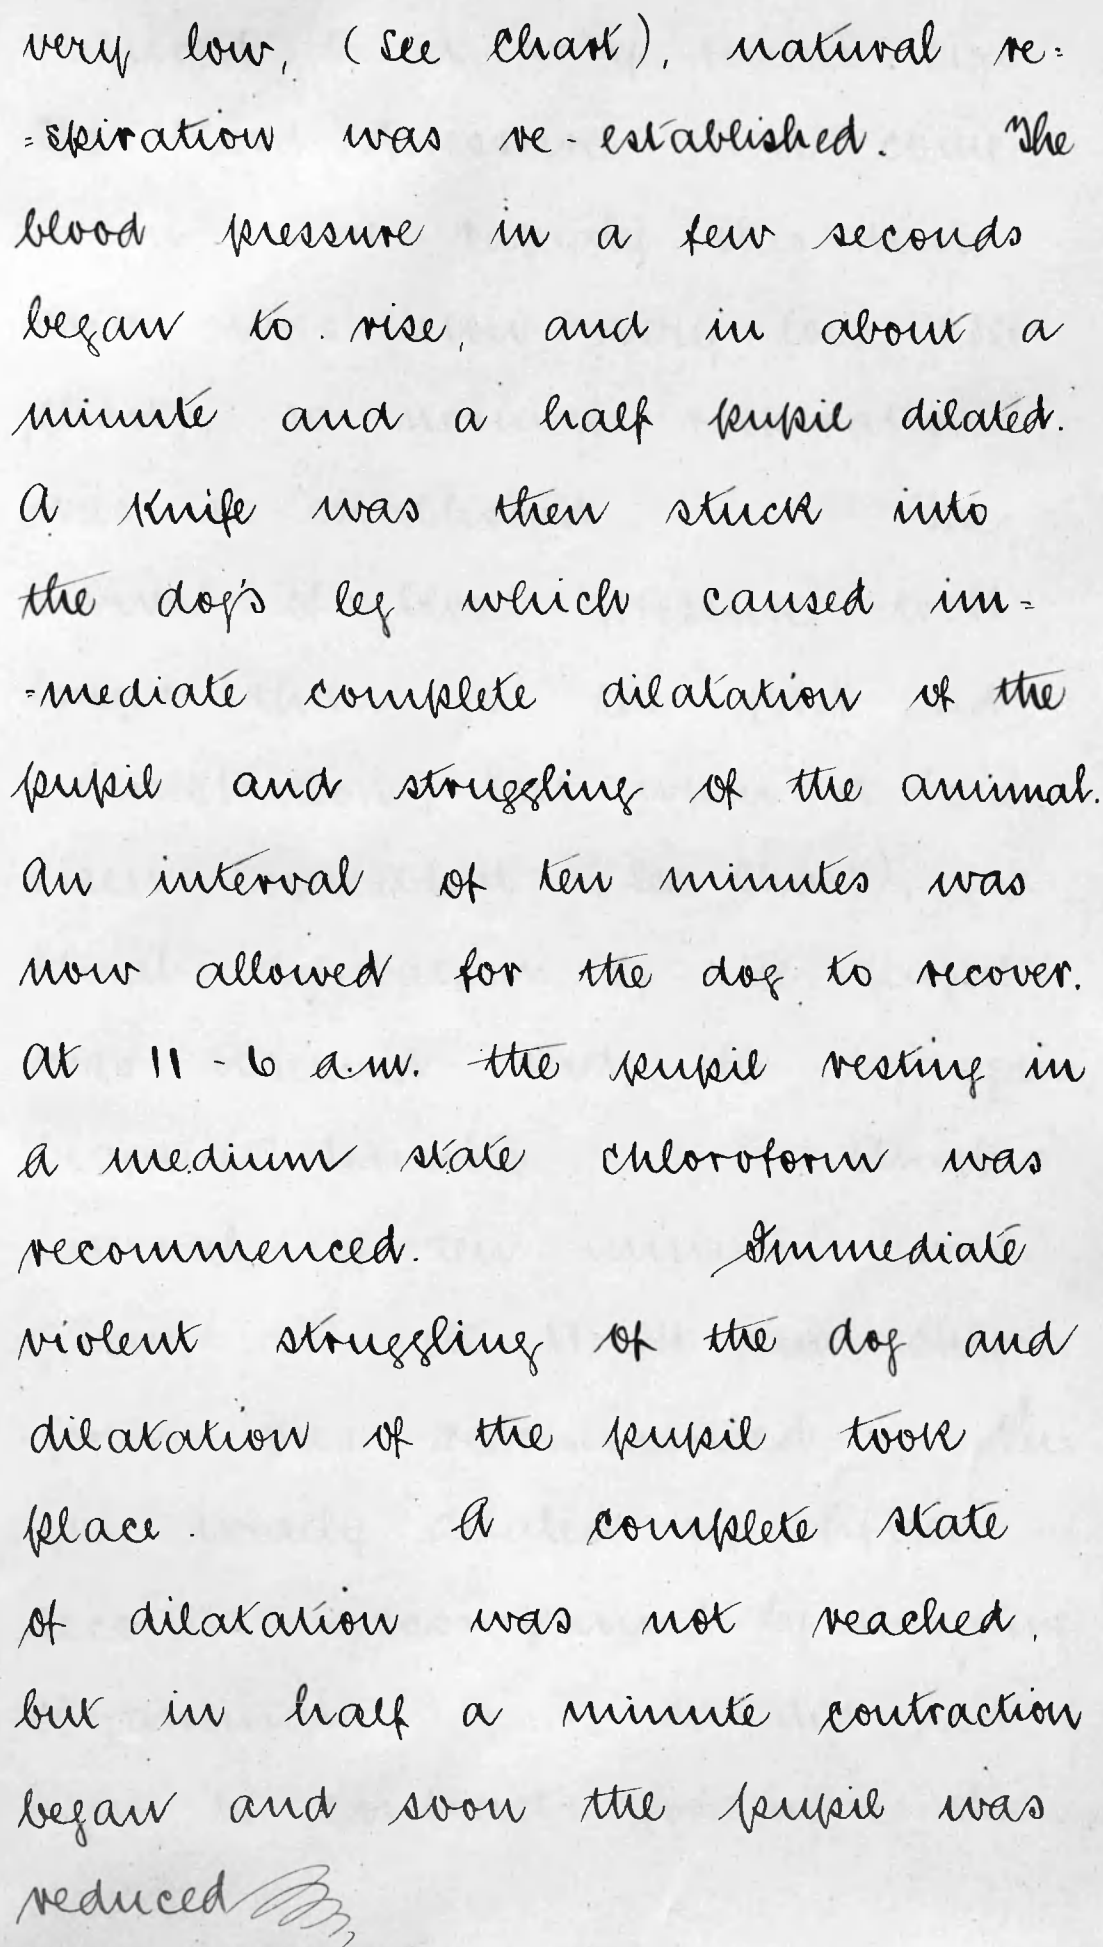 very low, (see chart), natural re=
=spiration was re-established. The
blood pressure in a few seconds
began to rise, and in about a
minute and a half pupil dilated.
A knife was then stuck into
the dog's leg which caused im=
=mediate complete dilatation of the
pupil and struggling of the animal.
An interval of ten minutes was
now allowed for the dog to recover.
At 11-6 a.m. the pupil resting in
a medium state chloroform was
recommenced. Immediate
violent struggling of the dog and
dilatation of the pupil took
place. A complete state
of dilatation was not reached,
but in half a minute contraction
began and soon the pupil was
reduced